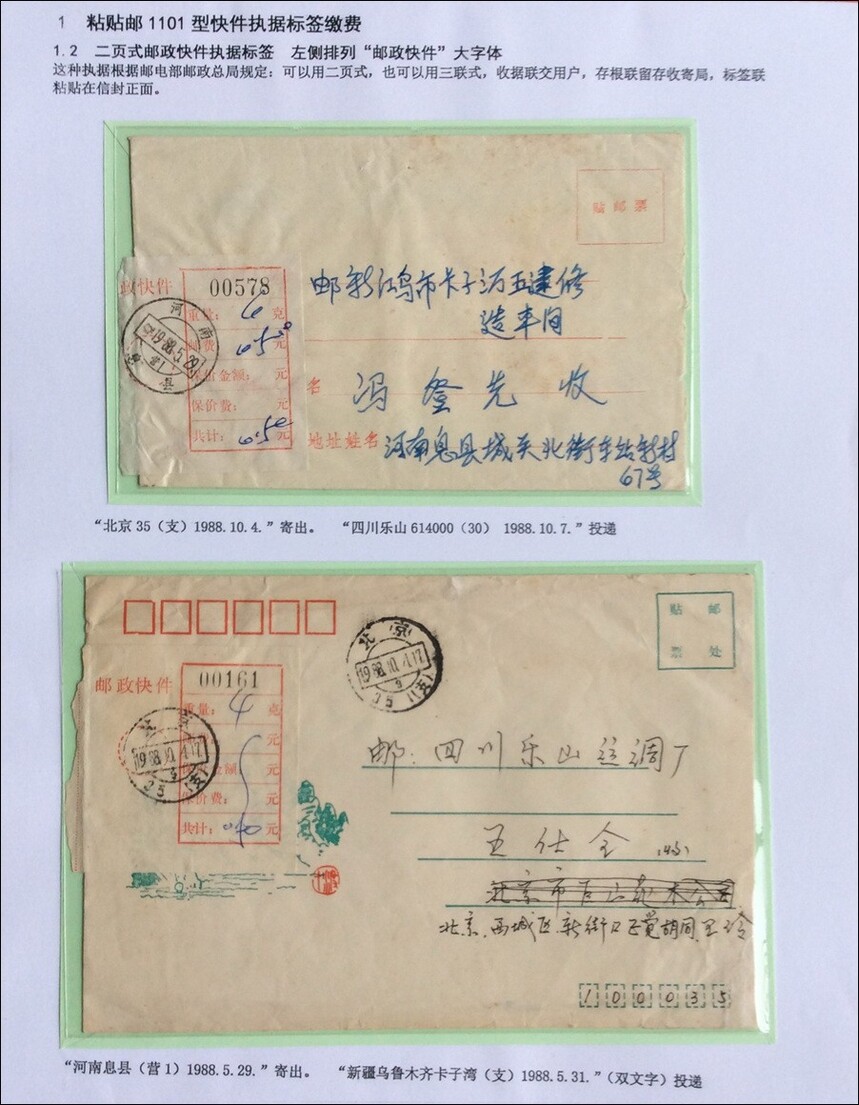 1 粘贴邮1101型快件执据标签缴费
1.2 二页式邮政快件执据标签 左侧排列“邮政快件”大字体
这种执据根据邮电部邮政总局规定：可以用二页式，也可以用三联式，收据联交用户，存根联留存收寄局，标签联
粘贴在信封正面。
贴邮票
政快件
00578
重量：6克
费 0.50元
保价金额：元
保价费：元
共计：0.50元
河南
息县
1988.5.29
邮新江乌市卡子湾五建修
造车间
名
冯登先 收
地址姓名
河南息县城关北街车站新村
67号
“北京35（支）1988.10.4.”寄出。 “四川乐山614000（30） 1988.10.7.”投递
贴邮
票处
北京
1988.10.4.17
35（支）
邮政快件
00161
重量：4克
元
金额 元
保价费：元
共计：元
北京
1988.10.4.17
35（支）
邮：四川乐山
王仕全
北京.西城区.新街口正觉胡同.王玲
100035
“河南息县（营1）1988.5.29.”寄出。 “新疆乌鲁木齐卡子湾（支）1988.5.31.”（双文字）投递